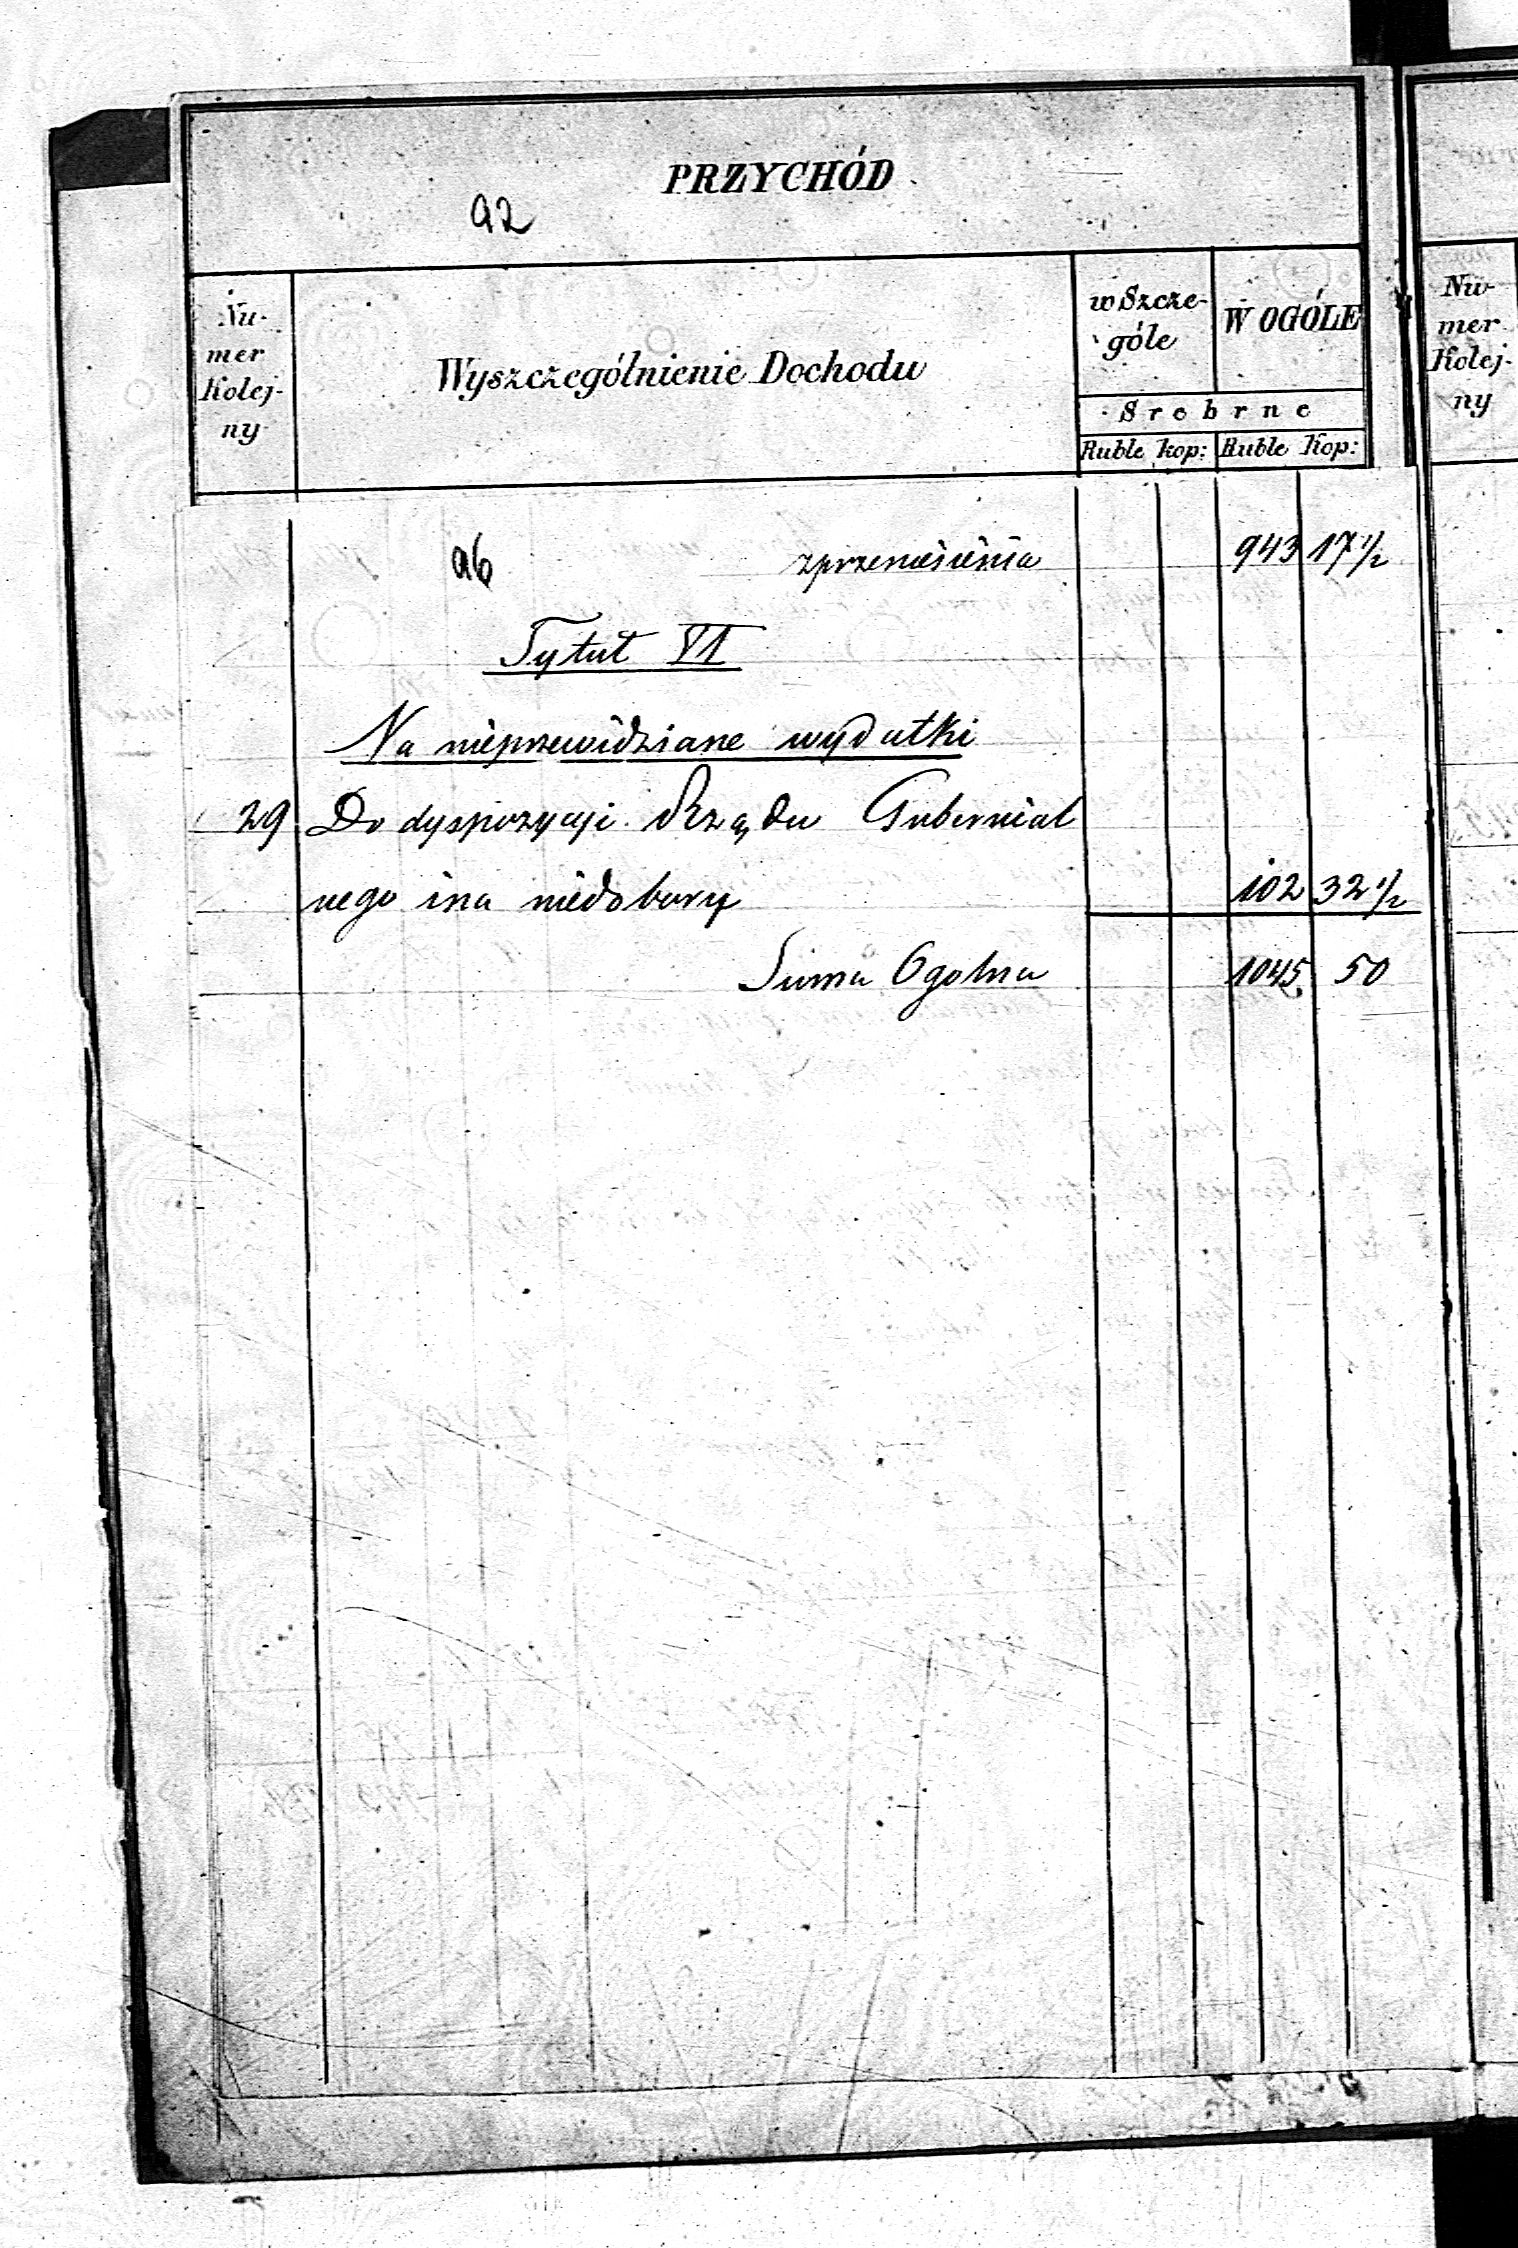 PRZYCHÓD
92
Nu-
mer
Kolej-
ny
Wyszczególnienie Dochodu
w Szcze-
góle
W OGÓLE
Srebrne
Ruble kop: Ruble Kop:
96 zprzeniesienia 943 17 1/2
Tytuł VI
Na nieprzewidziane wydatki
29 Do dyspozycyi Rządu Gubernial
nego i na niedobory 102 32 1/2
Suma Ogolna 1045 50
Nu-
mer
Kolej-
ny